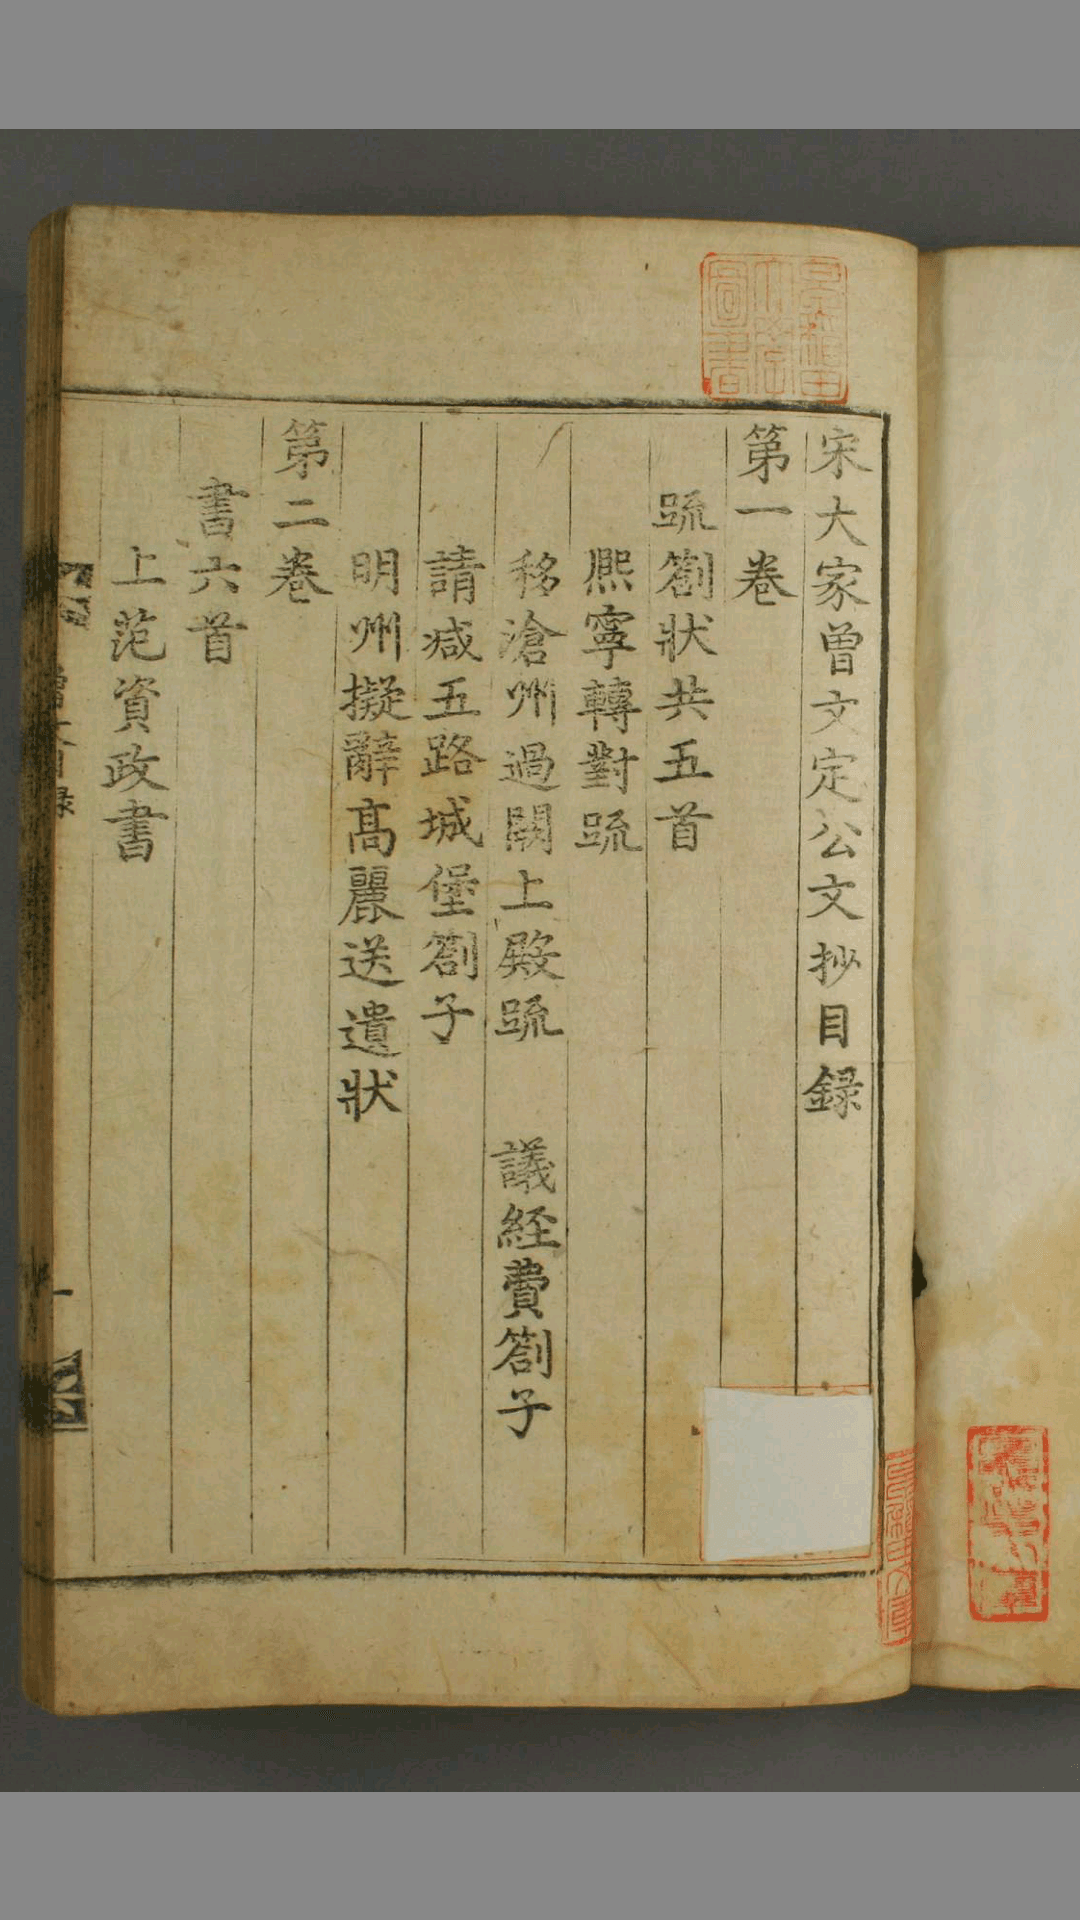 宋大家曾文定公文抄目録
第一卷
䟽劄狀共五首
熈寧轉對䟽
移滄州過闕上殿䟽　議経費劄子
請减五路城堡劄子
明州擬辭髙麗送遺狀
第二卷
書六首
上范資政書